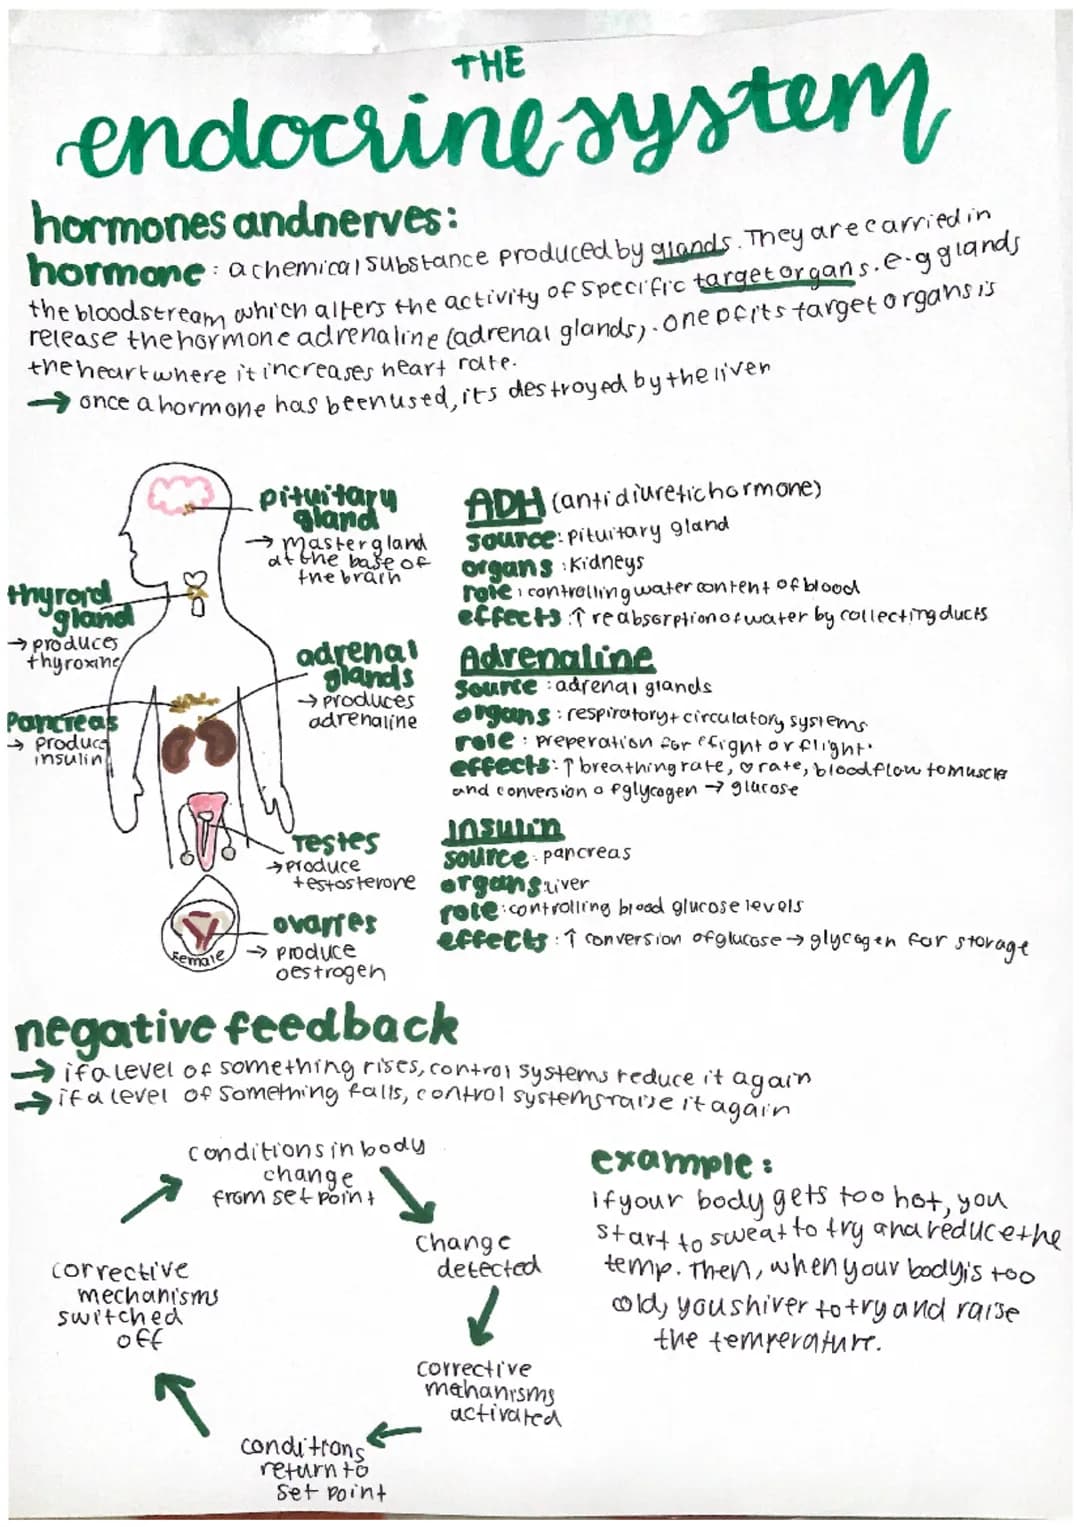 THE
endocrine system
hormones and nerves:
hormone: a chemical substance produced by glands. They are carried in
the bloodstream which alters the activity of specific target organs. e.g glands
release the hormone adrenaline (adrenal glands). one of its target organs is
the heart where it increases heart rate.
→ once a hormone has been used, its destroyed by the liver
pituitary
gland
→ master gland
at the base of
the brain
thyroid
gland
→ produces
thyroxine
adrenal
glands
→ produces
adrenaline
Pancreas
→ produces
insulin
Testes
→ produce
testosterone
ovaries
→ produce
oestrogen
female
ADH (antidiuretic hormone)
source: pituitary gland
organs: Kidneys
role: controlling water content of blood
effects: ↑ reabsorption of water by collecting ducts
Adrenaline
source: adrenal glands
organs: respiratory + circulatory systems
role: preperation for 'fight or flight'
effects: ↑ breathing rate, ♡ rate, blood flow to muscles
and conversion of glycogen → glucose
Insulin
source: pancreas
organs: liver
role: controlling blood glucose levels
effects: ↑ conversion of glucose → glycogen for storage
negative feedback
→ if a level of something rises, control systems reduce it again
→ if a level of something falls, control systems raise it again
conditions in body
change
from set point
change
detected
corrective
mehanisms
activated
conditions
return to
set point
corrective
mechanisms
switched
off
example:
if your body gets too hot, you
start to sweat to try and reduce the
temp. Then, when your body is too
cold, you shiver to try and raise
the temperature.